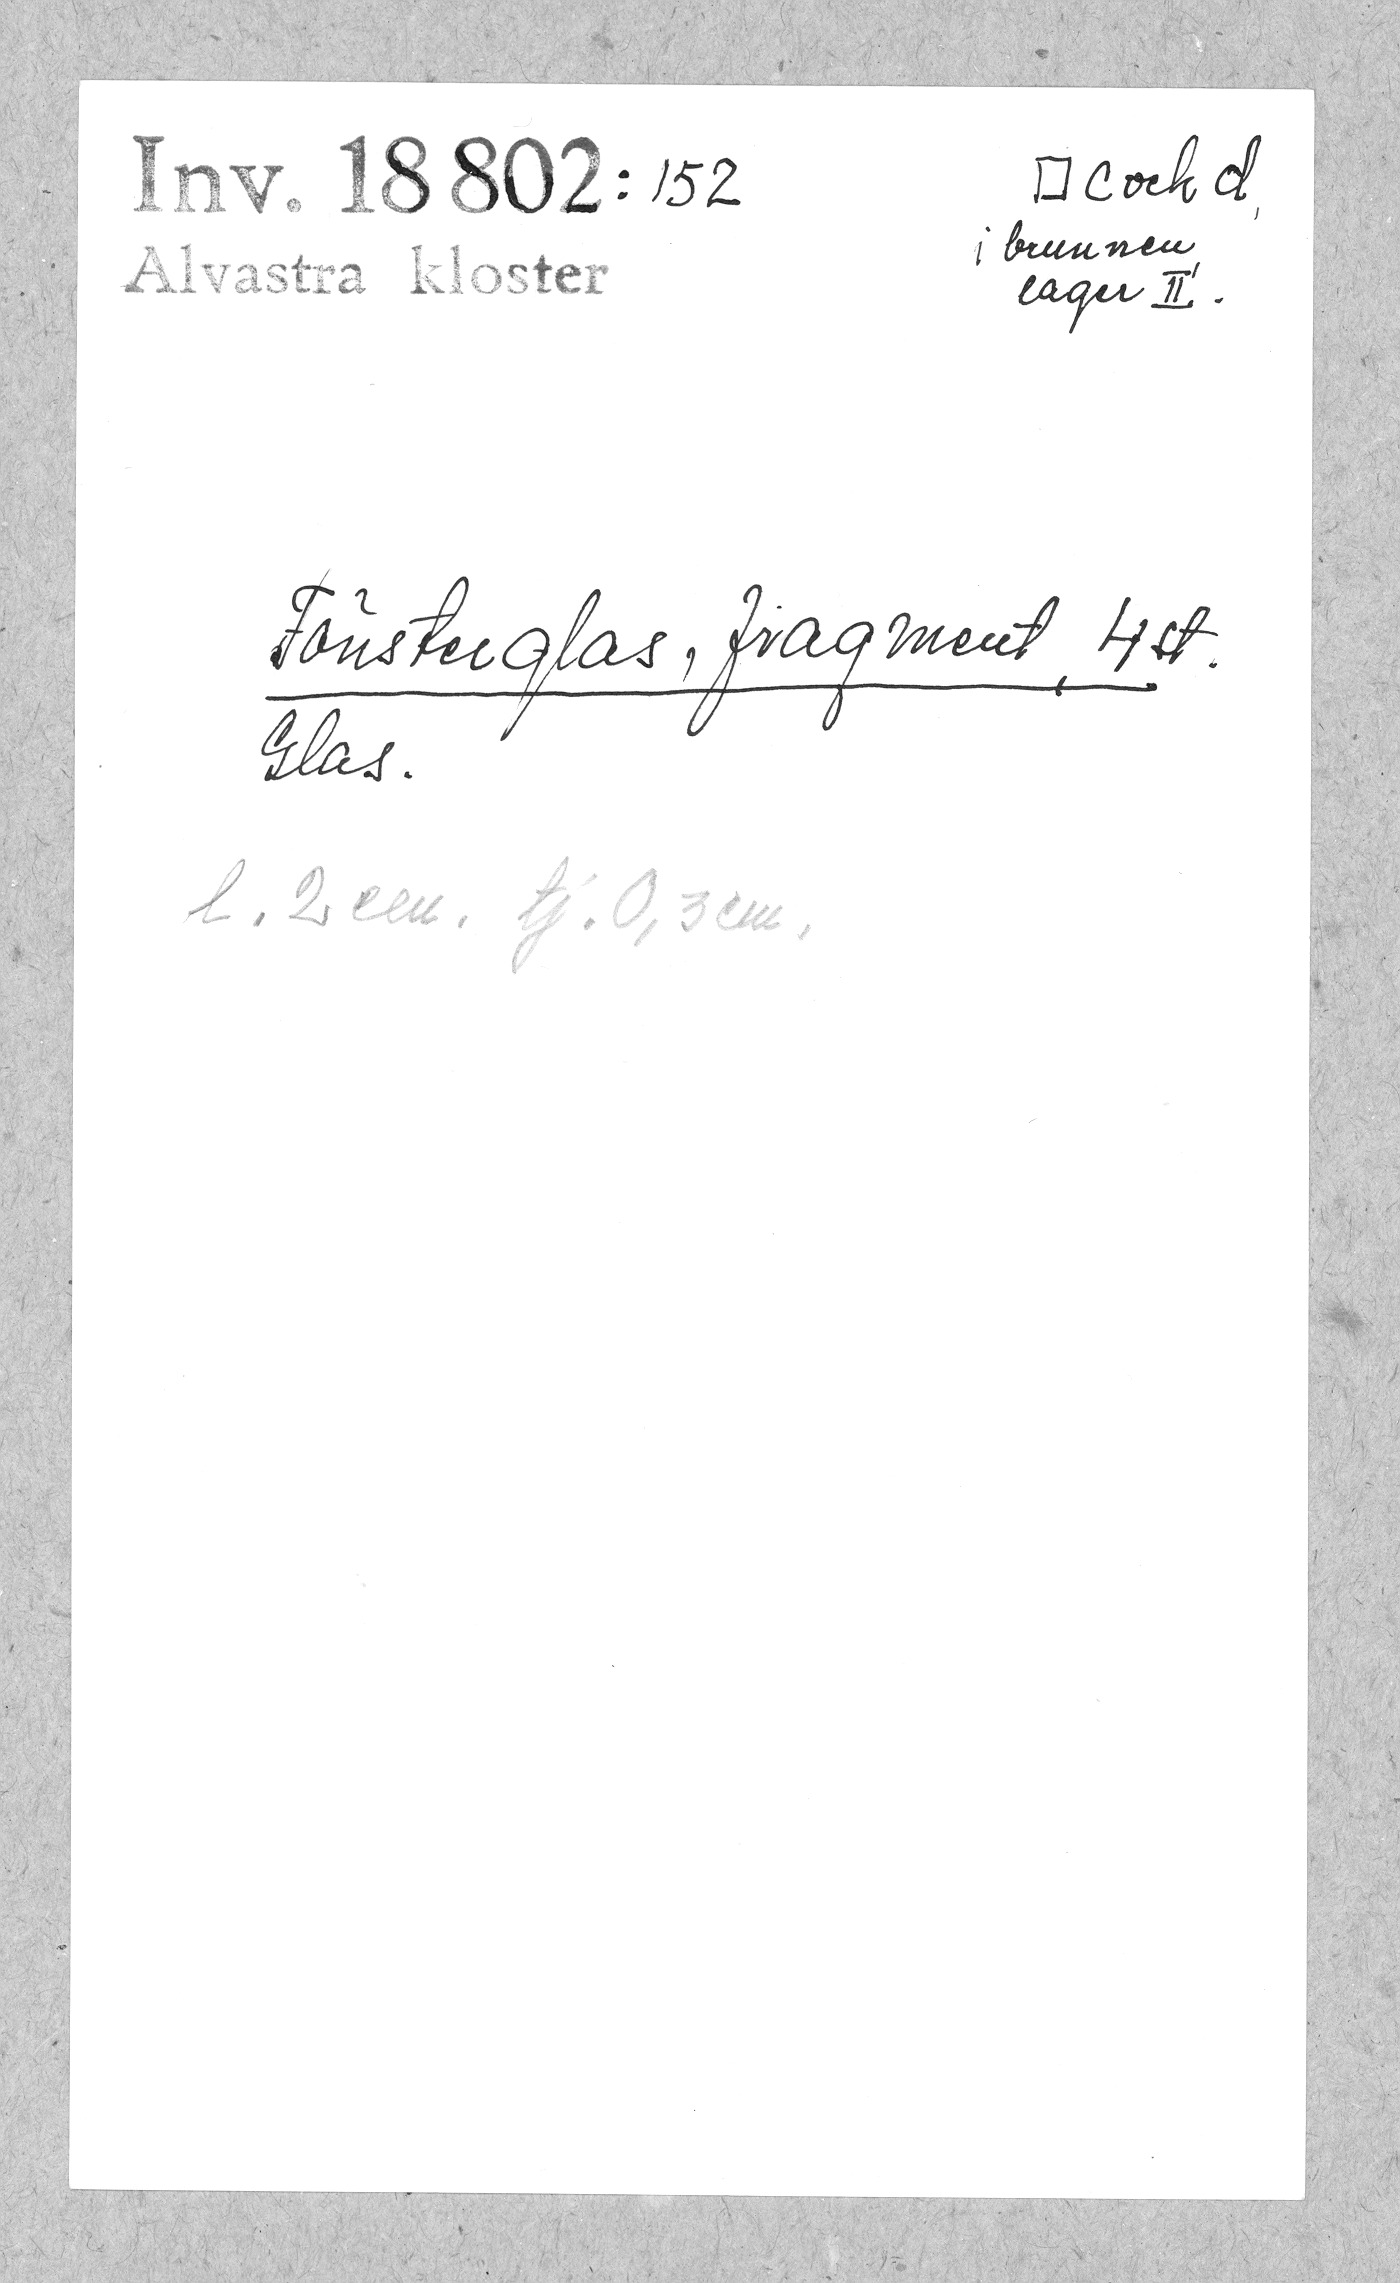 Inv. 18 802:152
Alvastra kloster
□ c och d,
i brunnen,
lager II.
Fönsterglas, fragment, 4 st.
Glas.
l. 2 cm. tj. 0,3 cm.